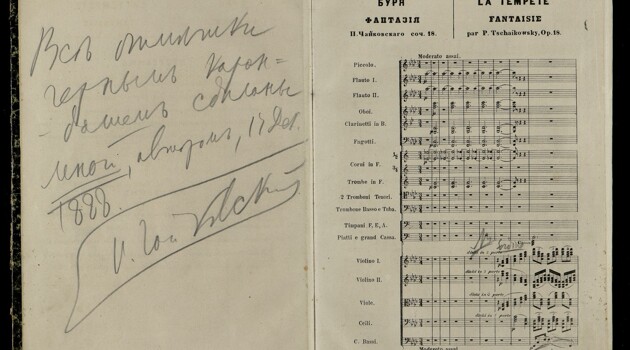 Всѣ отмѣтки
чернымъ каран=
-дашемъ сдѣланы
мной, авторомъ,
1888.
П. Чайковскій
БУРЯ
ФАНТАЗІЯ
П. Чайковскаго соч. 18.
LA TEMPÊTE
FANTAISIE
par P. Tschaikowsky, Op. 18.
Moderato assai.
Piccolo.
Flauto I.
Flauto II.
Oboi.
Clarinetti in B.
Fagotti.
Corni in F.
Trombe in F.
2 Tromboni Tenori.
Trombone Basso e Tuba.
Timpani F, E, A.
Piatti e grand Cassa.
Violino I.
Violino II.
Viole.
Celli.
C. Bassi.
Moderato assai.